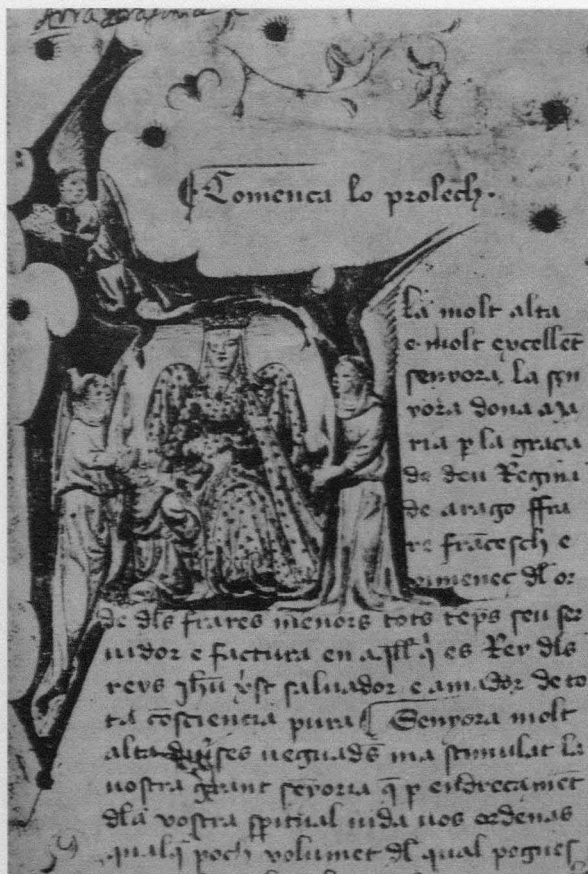 ¶Comença lo prolech.
la molt alta
e molt excellēt
senyora, la sen
yora dona Ma
ria p la gracia
de deu Regina
de arago ffra
re francesch e
ximenec dl or
de dls frares menors tots tēps seu ser
uidor e factura en aqll q̄ es Rey dls
reys ihū xst saluador e amador de to
ta cōsciencia pura ¶ Senyora molt
alta diuses ueguads ma stimulat la
uostra grant senyoria q̄ p endreçamēt
dla vostra spitual uida uos ordenas
qualq̄ poch volumet dl qual pogues